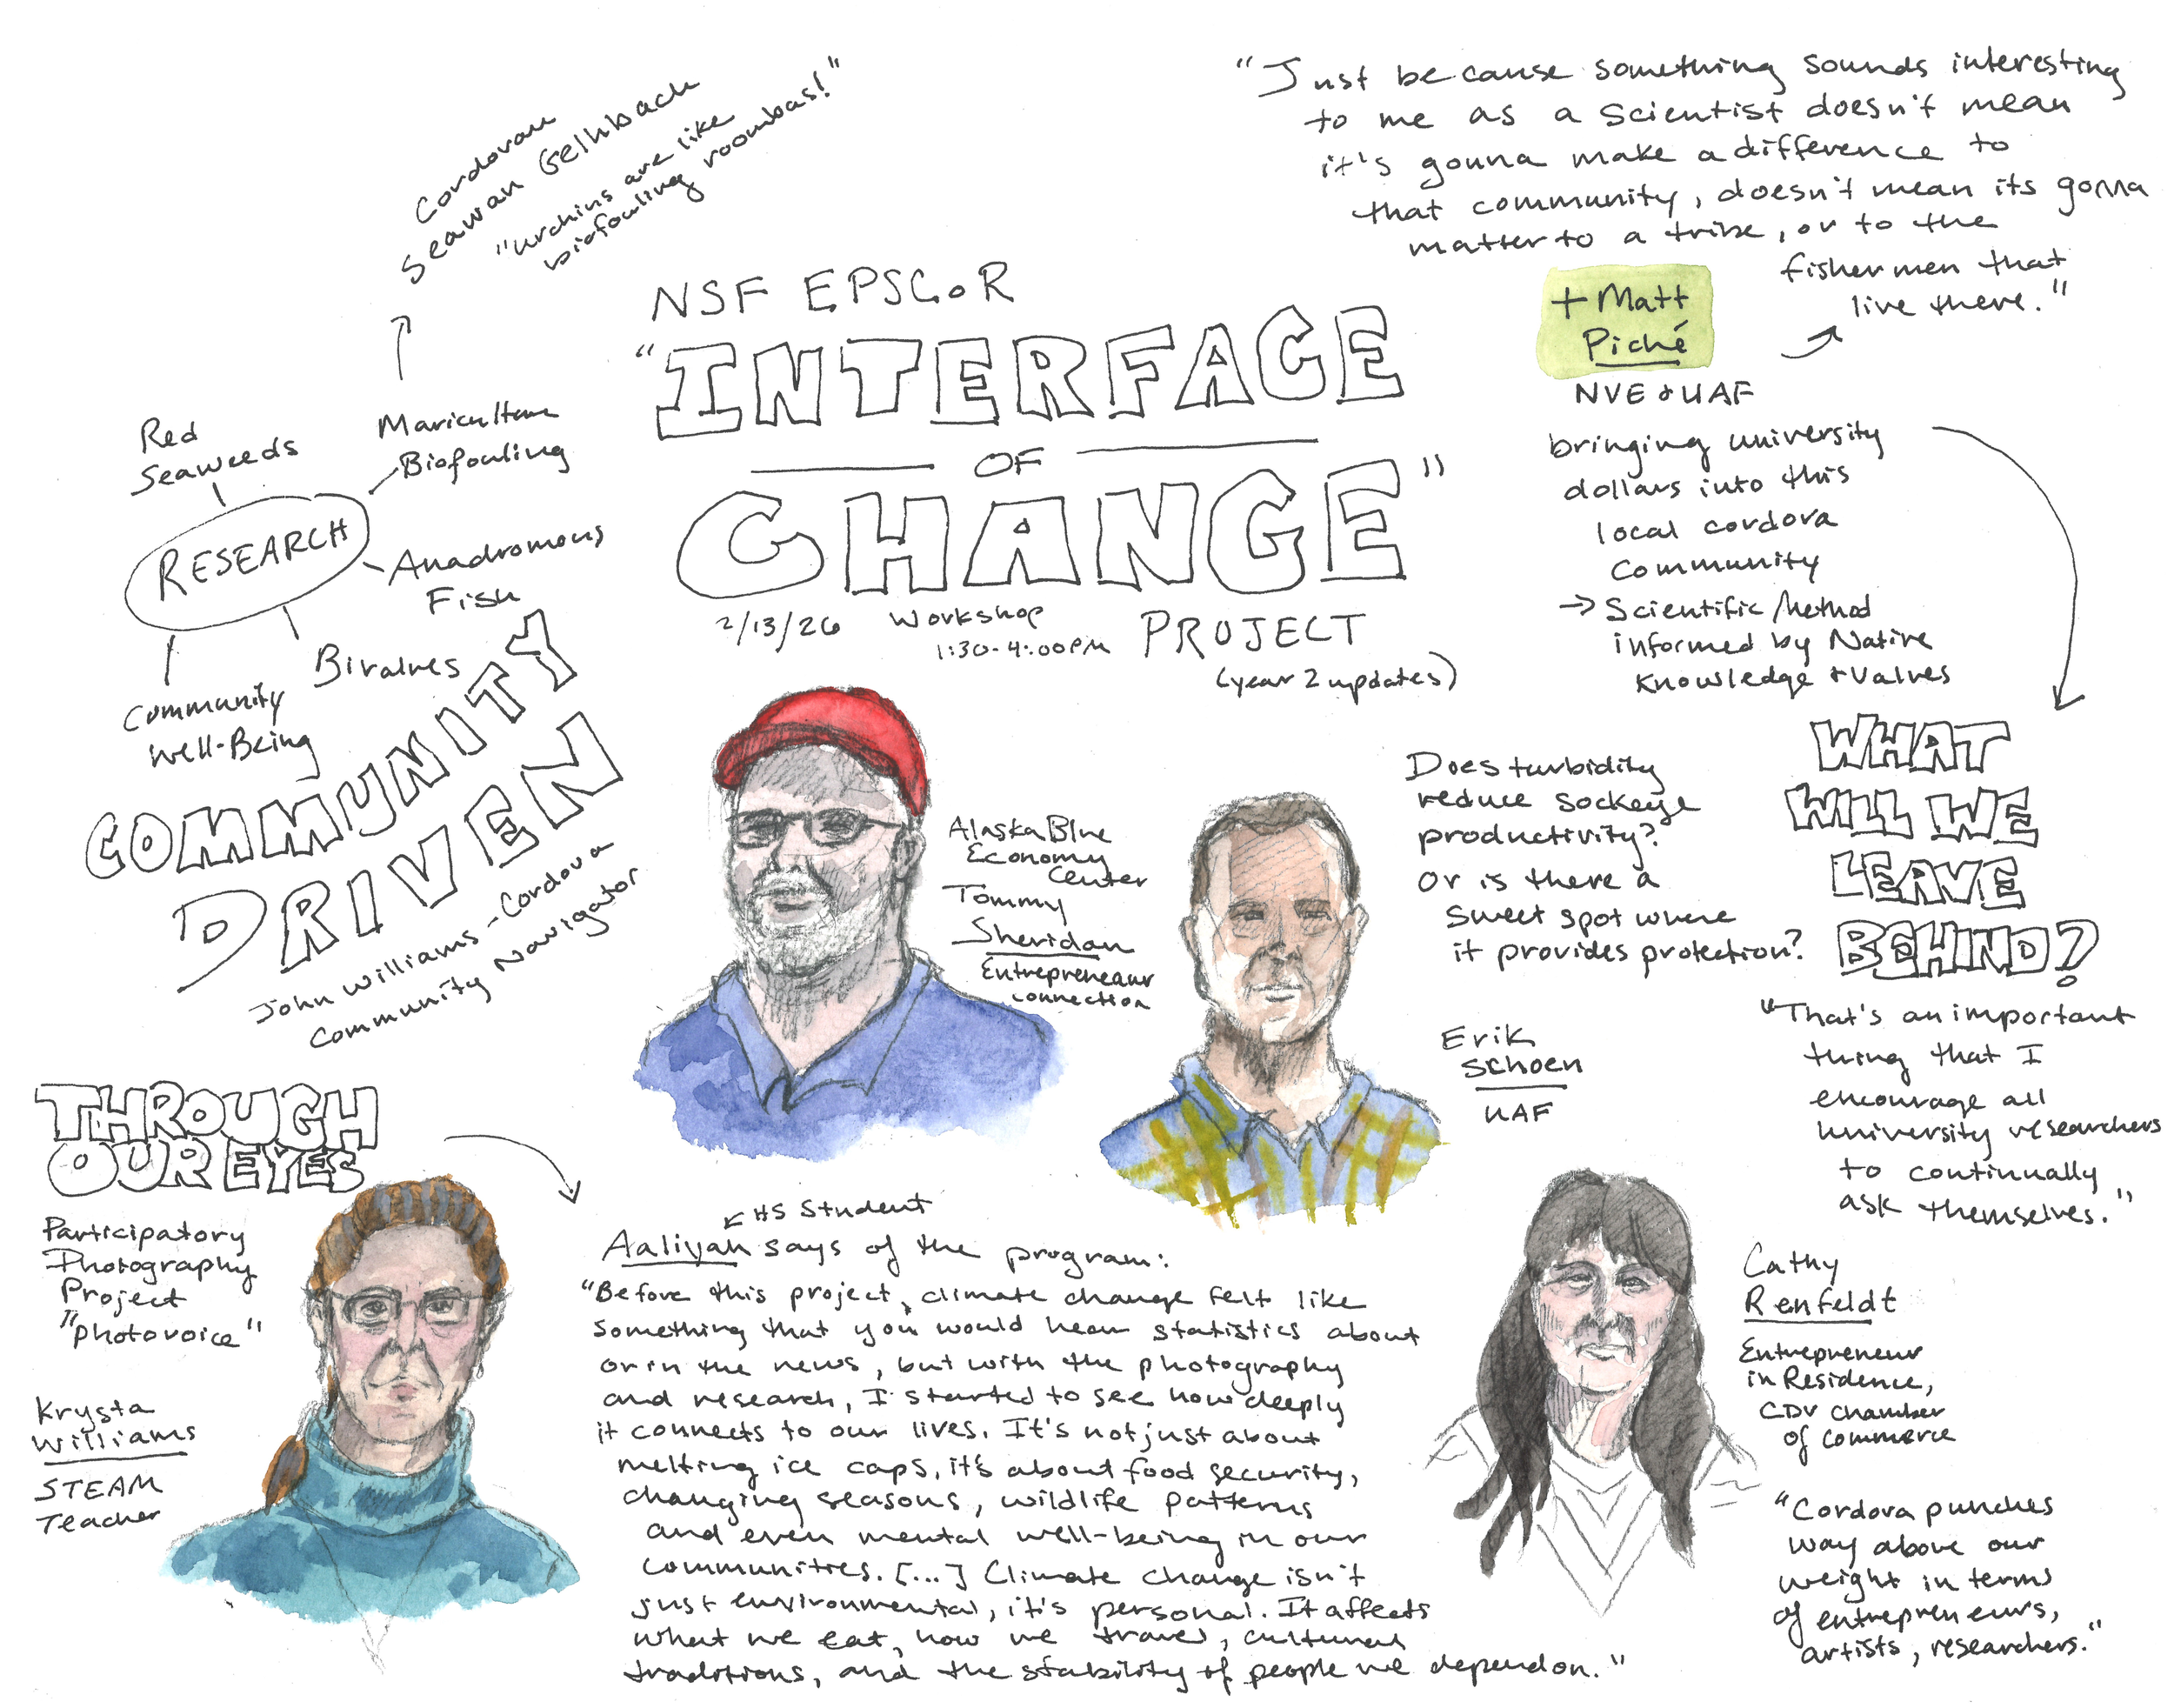 NSF EPSCoR
"INTERFACE
OF
CHANGE"
PROJECT
(year 2 updates)
2/13/26 Workshop
1:30-4:00PM
Cordovan
Seawan Gelhbach
"urchins are like
biofouling roombas!"
Red
Seaweeds
Mariculture
Biofouling
RESEARCH
Anadromous
Fish
Bivalves
Community
Well-Being
COMMUNITY
DRIVEN
John Williams - Cordova
Community Navigator
"Just because something sounds interesting
to me as a Scientist doesn't mean
it's gonna make a difference to
that community, doesn't mean its gonna
matter to a tribe, or to the
fishermen that
live there."
+ Matt
Piché
NVE + UAF
bringing university
dollars into this
local cordova
community
→ Scientific Method
informed by Native
Knowledge + Values
WHAT
WILL WE
LEAVE
BEHIND?
"That's an important
thing that I
encourage all
University researchers
to continually
ask themselves."
Alaska Blue
Economy
Center
Tommy
Sheridan
Entrepreneaur
connection
Does turbidity
reduce sockeye
productivity?
or is there a
sweet spot where
it provides protection?
Erik
Schoen
UAF
THROUGH
OUR EYES
Participatory
Photography
Project
"photovoice"
Krysta
Williams
STEAM
Teacher
HS Student
Aaliyah says of the program:
"Before this project, climate change felt like
something that you would hear statistics about
or in the news, but with the photography
and research, I started to see how deeply
it connects to our lives. It's not just about
melting ice caps, it's about food security,
changing seasons, wildlife patterns
and even mental well-being in our
communities. [...] Climate change isn't
just environmental, it's personal. It affects
what we eat, how we travel, cultural
traditions, and the stability of people we depend on."
Cathy
Renfeldt
Entrepreneur
in Residence,
CDV Chamber
of Commerce
"Cordova punches
way above our
weight in terms
of entrepreneurs,
artists, researchers."